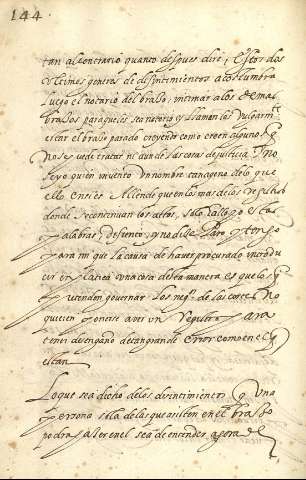 144
tan al contrario quanto despues dire, Estos dos
ultimos generos de disentimientos acostumbra
luego el notario del braço, intimar a los demas
braços para que les sea notorio y llaman los vulgarmte
estar el braço parado creyendo como creen algunos q
no se puede tractar ni aun de las cosas de justicia,
quien invento un nombre tan ageno de lo que
ello en si es Allende que en los mas de los Registros
donde se continuan los actos, solo hallo estas
palabras, desiento, y no dize Paro, y tengo
para mi que la causa de haver procurado introdu
cir en platica una cosa desta manera es que los q
pretenden governar los negos de las cortes no
quieren ponerse a ver un Registro para
tener desengaño de tan grande error como en el q
estan
Lo que sea dicho de los disentimientos, q una
persona sola de las que asisten en el braço
podra hazer en el sea de entender agora de